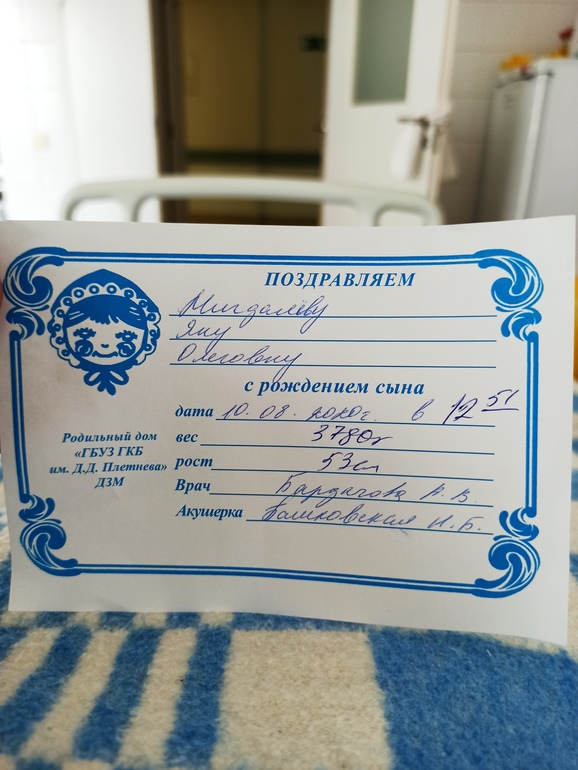 ПОЗДРАВЛЯЕМ
Мигдалёву
Яну
Олеговну
с рождением сына
дата 10.08.2020г. в 12 51
вес 3780г
рост 53см
Врач А. В.
Акушерка Н. Б.
Родильный дом
«ГБУЗ ГКБ
им. Д.Д. Плетнева»
ДЗМ